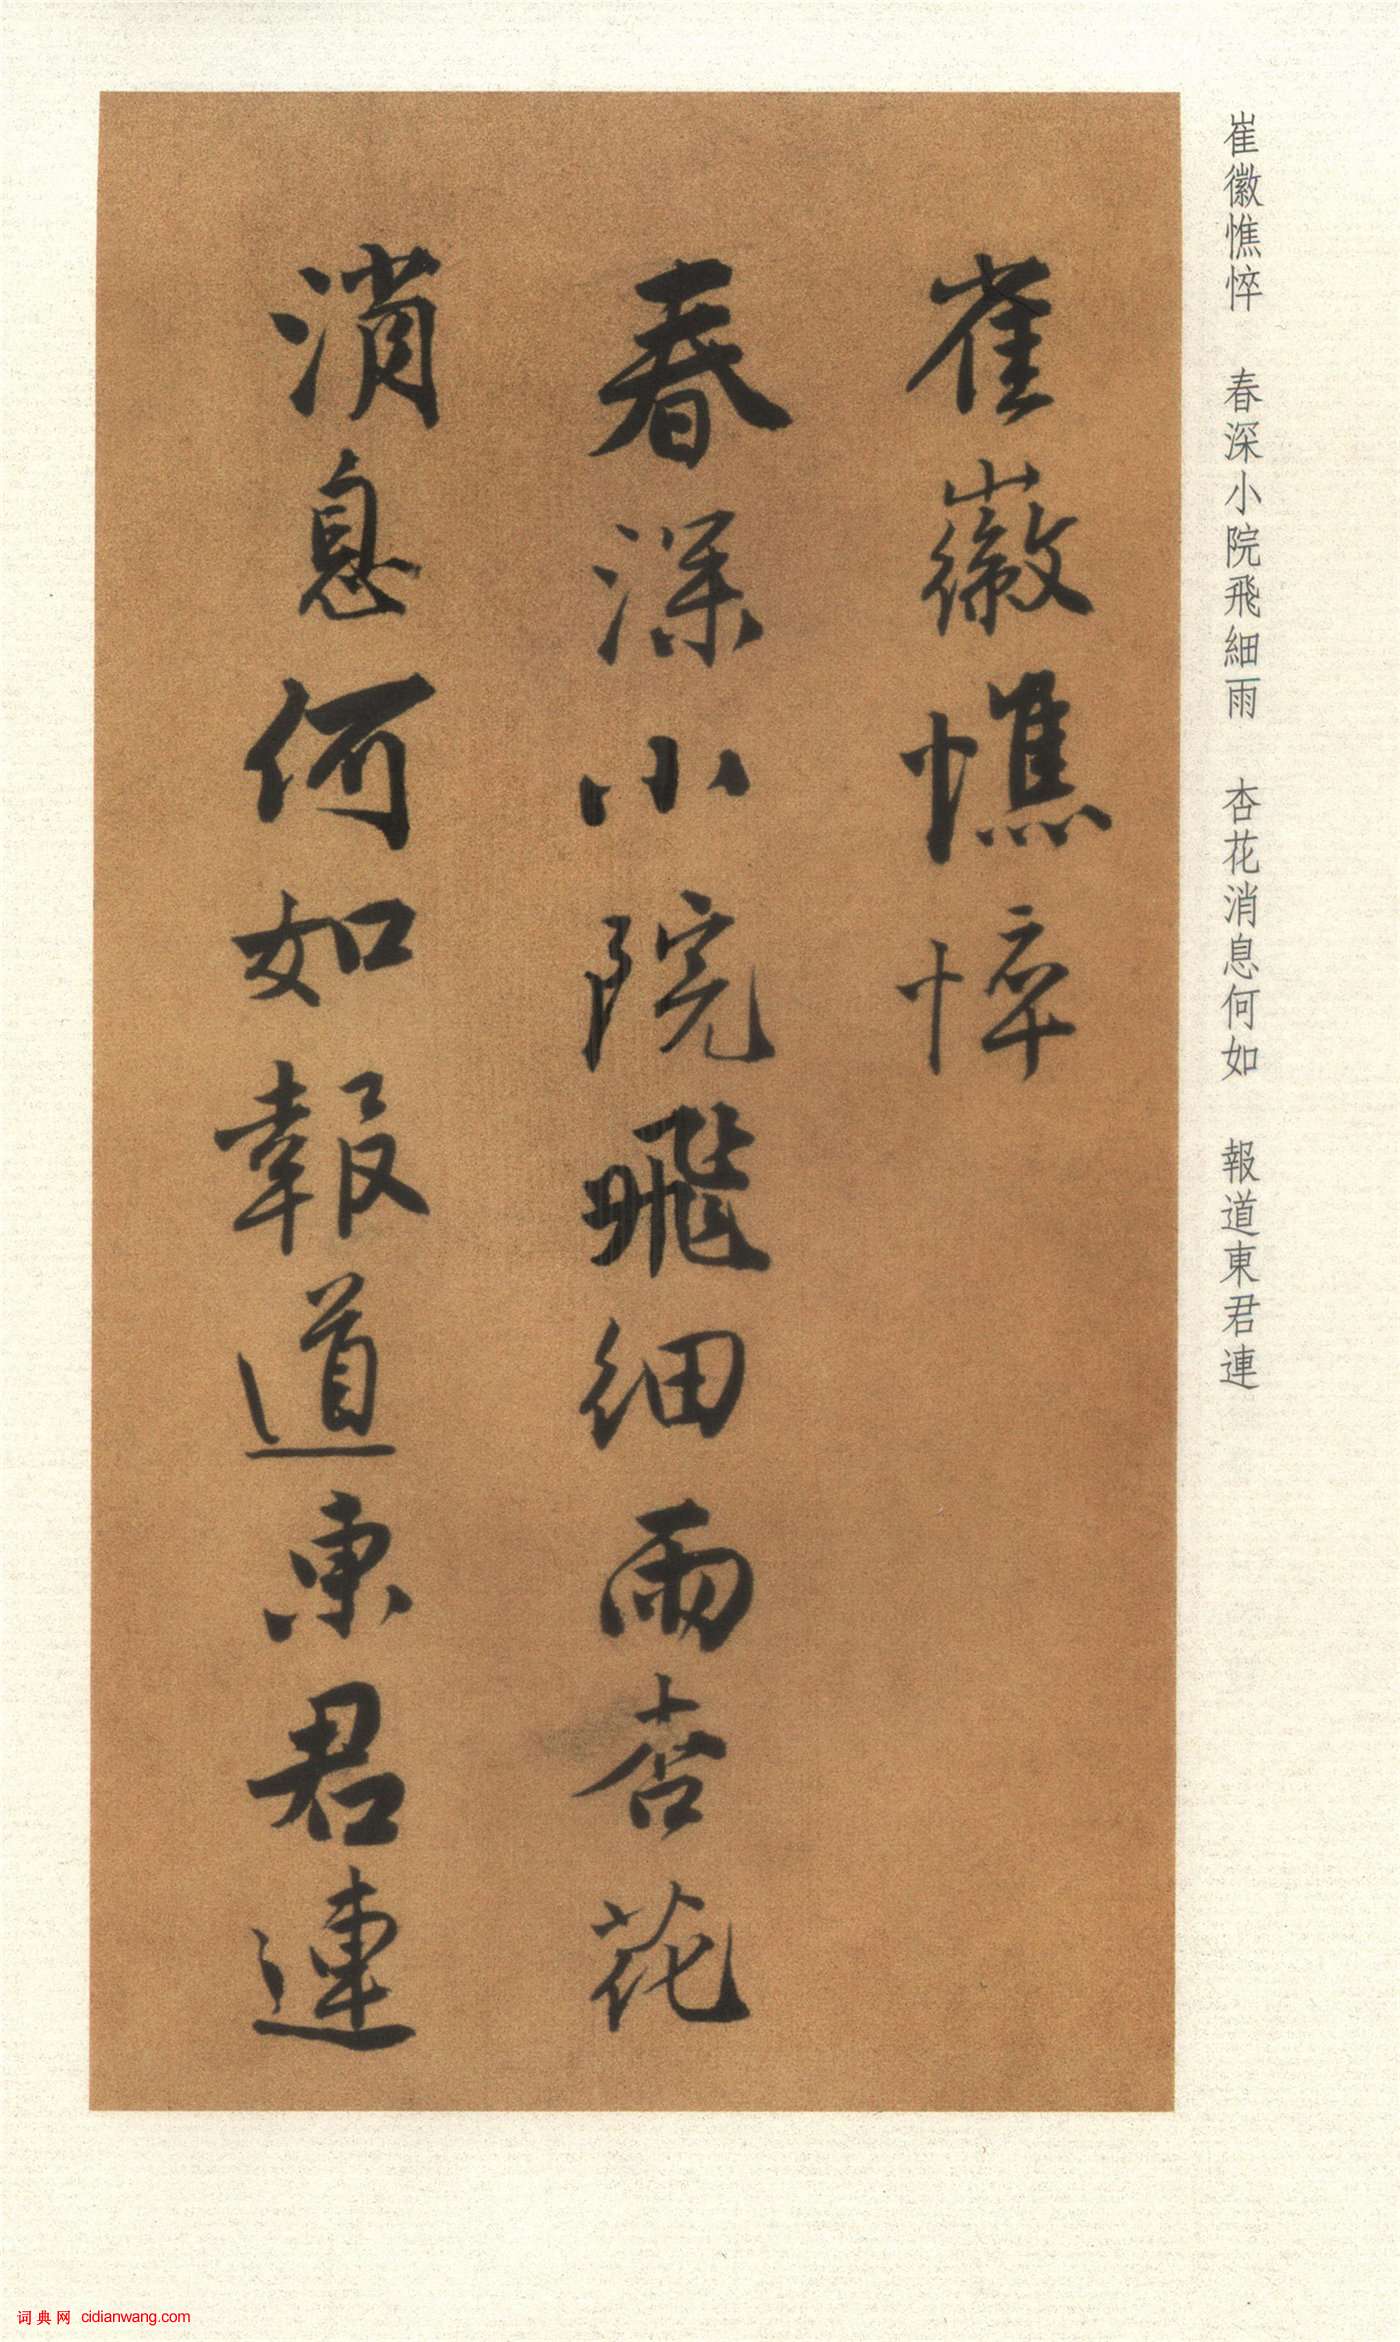 崔徽憔悴　春深小院飛細雨　杏花消息何如　報道東君連
崔徽憔悴
春深小院飛細雨杏花
消息何如報道東君連
词典网 cidianwang.com